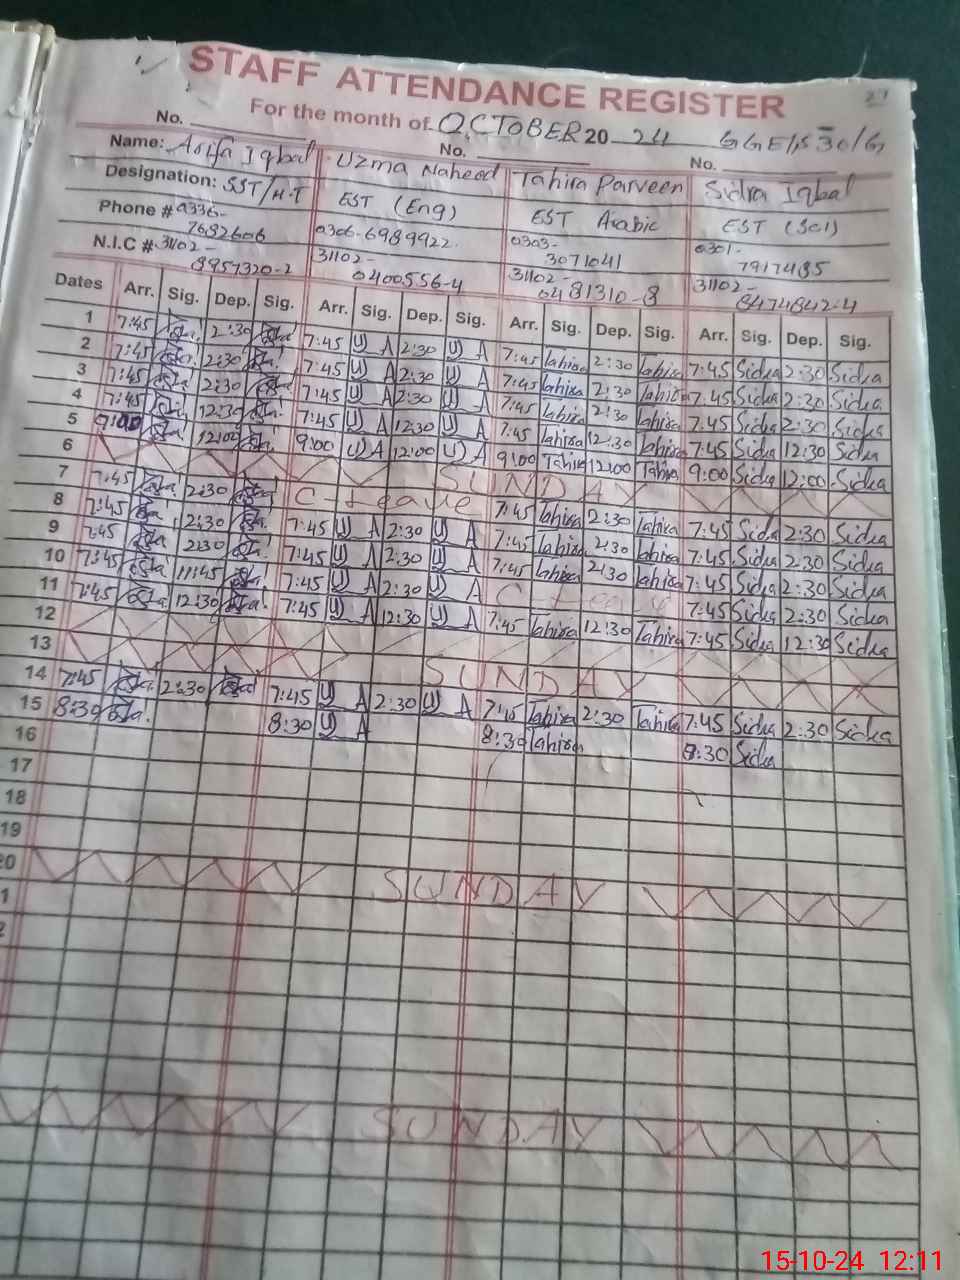 STAFF ATTENDANCE REGISTER
For the month of OCTOBER 20 24
No. No. No.
Name: Asifa Iqbal Uzma Naheed Tahira Parveen Sidra Iqbal
Designation: SST/H.T EST (Eng) EST Arabic EST (Sci)
Phone # 0336-7682606 0306-6989922 0303-3071041 0301-7917485
N.I.C # 31102-8957320-2 31102-0400556-4 31102-0481310-8 31102-8474842-4
Dates Arr. Sig. Dep. Sig. Arr. Sig. Dep. Sig. Arr. Sig. Dep. Sig. Arr. Sig. Dep. Sig.
1 7:45 2:30 7:45 U A 2:30 U A 7:45 Tahira 2:30 Tahira 7:45 Sidra 2:30 Sidra
2 7:45 2:30 7:45 U A 2:30 U A 7:45 Tahira 2:30 Tahira 7:45 Sidra 2:30 Sidra
3 7:45 2:30 7:45 U A 2:30 U A 7:45 Tahira 2:30 Tahira 7:45 Sidra 2:30 Sidra
4 7:45 12:30 7:45 U A 12:30 U A 7:45 Tahira 12:30 Tahira 7:45 Sidra 12:30 Sidra
5 9:00 12:00 9:00 U A 12:00 U A 9:00 Tahira 12:00 Tahira 9:00 Sidra 12:00 Sidra
6 SUNDAY
7 7:45 2:30 C-Leave 7:45 Tahira 2:30 Tahira 7:45 Sidra 2:30 Sidra
8 7:45 2:30 7:45 U A 2:30 U A 7:45 Tahira 2:30 Tahira 7:45 Sidra 2:30 Sidra
9 7:45 2:30 7:45 U A 2:30 U A 7:45 Tahira 2:30 Tahira 7:45 Sidra 2:30 Sidra
10 7:45 11:45 7:45 U A 2:30 U A C-Leave 7:45 Sidra 2:30 Sidra
11 7:45 12:30 7:45 U A 12:30 U A 7:45 Tahira 12:30 Tahira 7:45 Sidra 12:30 Sidra
12
13 SUNDAY
14 7:45 2:30 7:45 U A 2:30 U A 7:45 Tahira 2:30 Tahira 7:45 Sidra 2:30 Sidra
15 8:30 8:30 U A 8:30 Tahira 8:30 Sidra
16
17
18
19
20 SUNDAY
1
2
SUNDAY
15-10-24 12:11